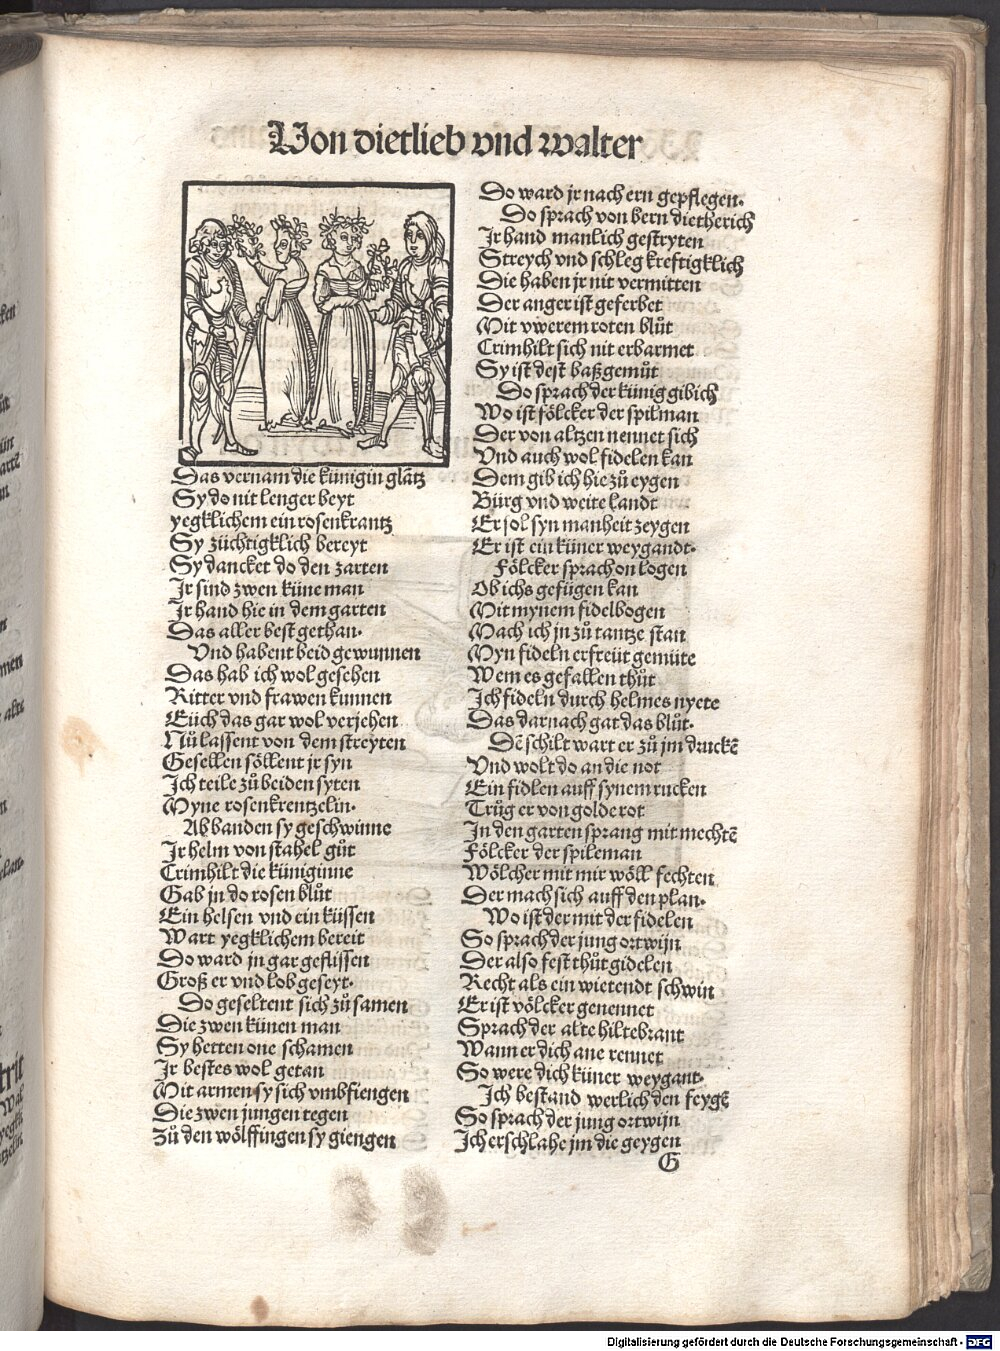 Von dietlieb vnd walter
Das vernam die künigin glātz
Sy do nit lenger beyt
yegklichem ein rosenkrantz
Sy züchtigklich bereyt
Sy dancket do den zarten
Jr sind zwen küne man
Jr hand hie in dem garten
Das aller best gethan.
Vnd habent beid gewunnen
Das hab ich wol gesehen
Ritter vnd frawen kunnen
Eüch das gar wol verjehen
Nů lassent von dem streyten
Gesellen söllent jr syn
Ich teile zů beiden syten
Myne rosenkrentzelin.
Ab banden sy geschwinne
Jr helm von stahel gůt
Crimhilt die küniginne
Gab jn do rosen blůt
Ein helsen vnd ein küssen
Wart yegklichem bereit
Do ward jn gar geflissen
Groß er vnd lob geseyt.
Do geseltent sich zů samen
Die zwen künen man
Sy hetten one schamen
Jr bestes wol getan
Mit armen sy sich vmbfiengen
Die zwen jungen tegen
Zů den wölffingen sy giengen
Do ward jr nach ern gepflegen.
Do sprach von bern dietherich
Jr hand manlich gestryten
Streych vnd schleg kreftigklich
Die haben jr nit vermitten
Der anger ist geferbet
Mit vwerem roten blůt
Crimhilt sich nit erbarmet
Sy ist dest baß gemůt
Do sprach der künig gibich
Wo ist fölcker der spilman
Der von altzen nennet sich
Vnd auch wol fidelen kan
Dem gib ich hie zů eygen
Bürg vnd weite landt
Er sol syn manheit zeygen
Er ist ein küner weygandt.
Fölcker sprach on logen
Ob ichs gefügen kan
Mit mynem fidelbogen
Mach ich jn zů tantze stan
Myn fideln erfreüt gemüte
Wem es gefallen thůt
Ich fideln durch helmes nyete
Das darnach gat das blůt.
Dē schilt wart er zů jm druckē
Vnd wolt do an die not
Ein fidlen auff synem rucken
Trůg er von golde rot
In den garten sprang mit mechtē
Fölcker der spileman
Wölcher mit mir wöll fechten
Der mach sich auff den plan.
Wo ist der mit der fidelen
So sprach der jung ortwijn
Der also fest thůt gidelen
Recht als ein wietendt schwin
Er ist völcker genennet
Sprach der alte hiltebrant
Wann er dich ane rennet
So were dich küner weygant.
Ich bestand werlich den feygē
So sprach der jung ortwijn
Ich erschlahe jm die geygen
G
Digitalisierung gefördert durch die Deutsche Forschungsgemeinschaft - DFG